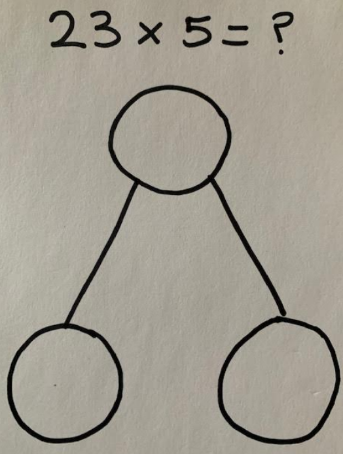 23 × 5 = ?